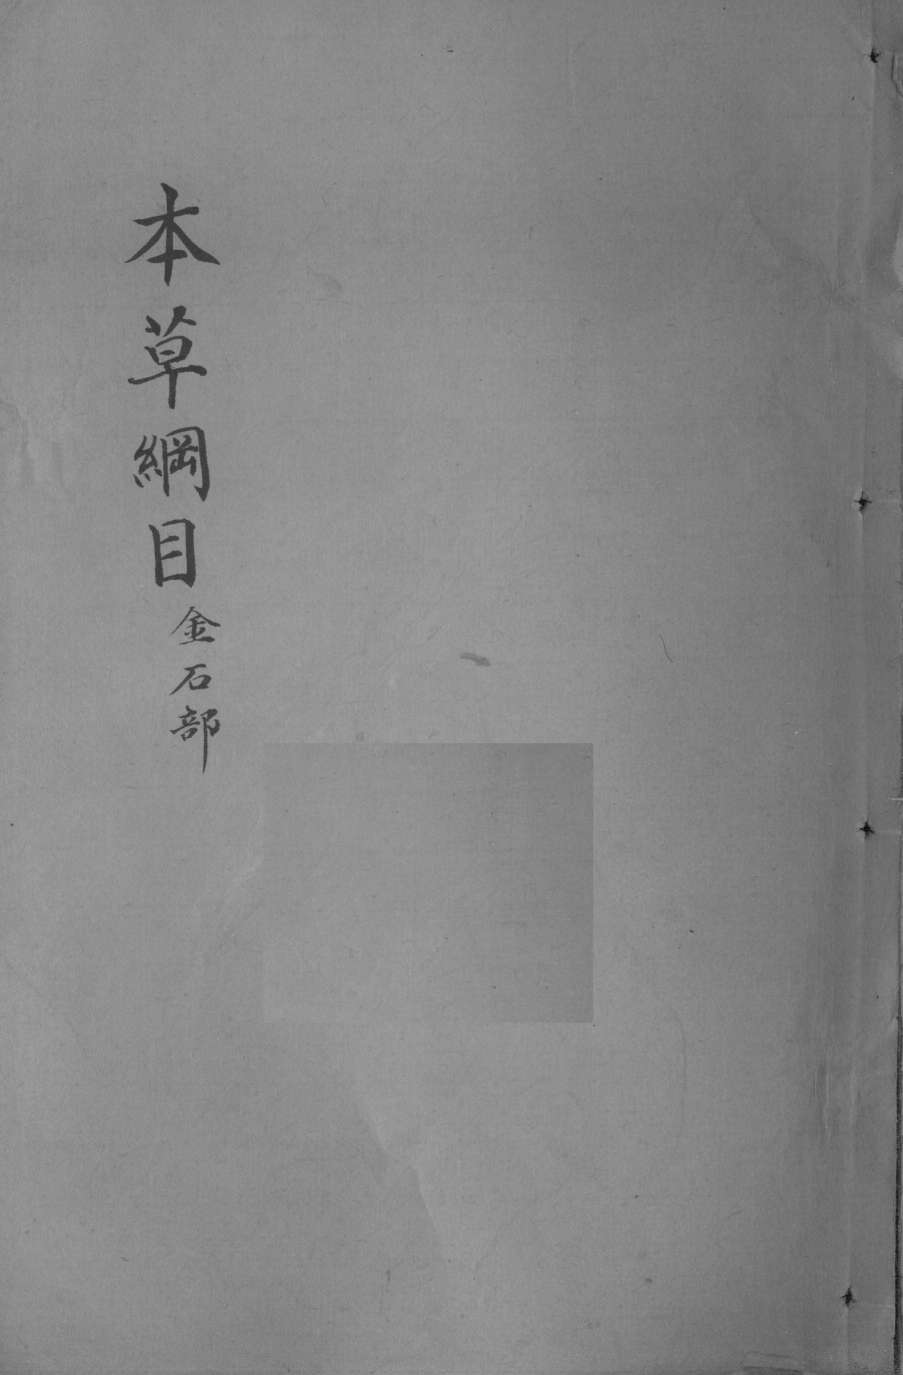 本草綱目金石部